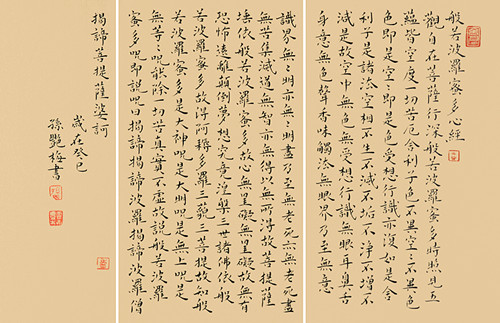 般若波羅蜜多心經
觀自在菩薩行深般若波羅蜜多時照見五
蘊皆空度一切苦厄舍利子色不異空〻不異色
色即是空〻即是色受想行識亦復如是舍
利子是諸法空相不生不滅不垢不淨不增不
減是故空中無色無受想行識無眼耳鼻舌
身意無色聲香味觸法無眼界乃至無意
識界無〻明亦無〻明盡乃至無老死亦無老死盡
無苦集滅道無智亦無得以無所得故菩提薩
埵依般若波羅蜜多故心無罣礙無罣礙故無有
恐怖遠離顛倒夢想究竟涅槃三世諸佛依般
若波羅蜜多故得阿耨多羅三藐三菩提故知般
若波羅蜜多是大神呪是大明呪是無上呪是
無等〻呪能除一切苦真實不虛故說般若波羅
蜜多呪即說呪曰揭諦揭諦波羅揭諦波羅僧
揭諦菩提薩婆訶
歲在癸巳
孫艷梅書